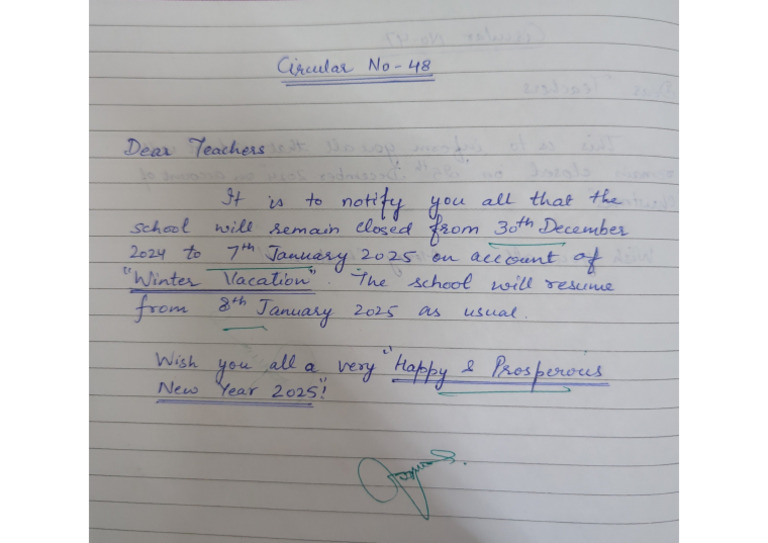 Circular No-48
Dear Teachers
It is to notify you all that the
school will remain closed from 30th December
2024 to 7th January 2025 on account of
"Winter Vacation". The school will resume
from 8th January 2025 as usual.
Wish you all a very "Happy & Prosperous
New Year 2025"!